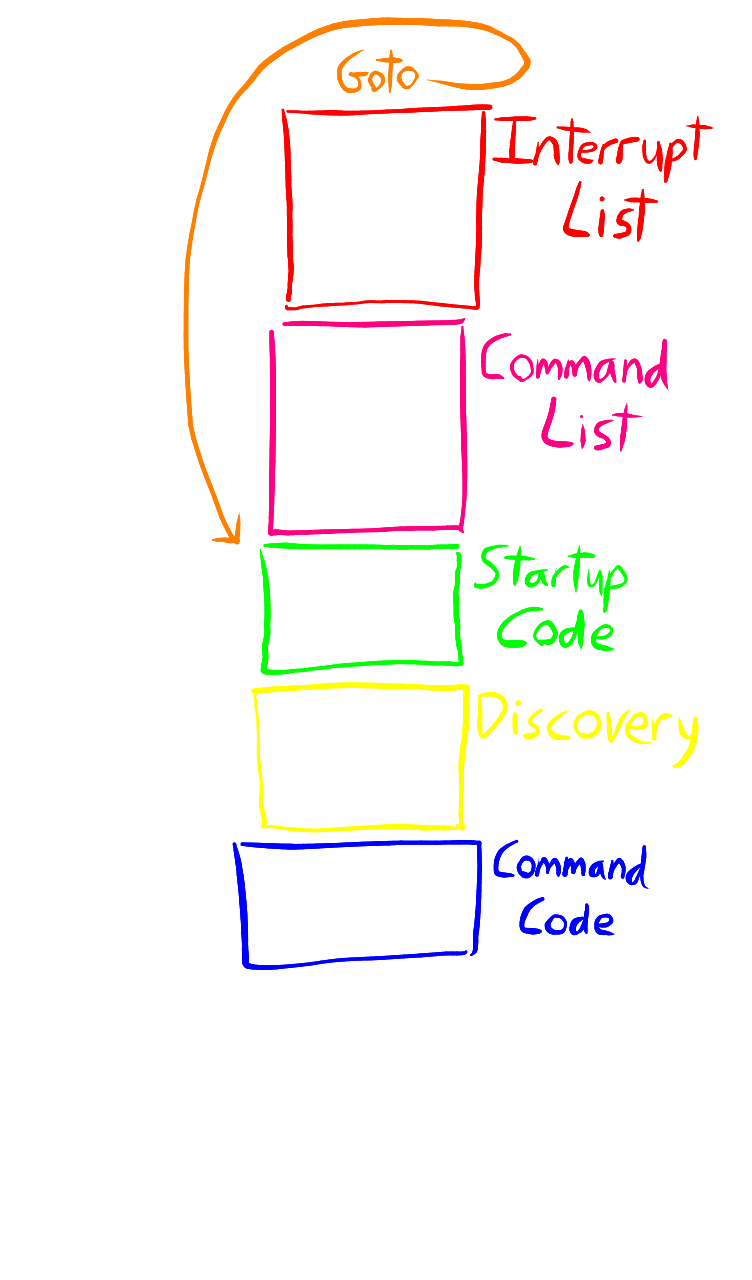 Goto
Interrupt
List
Command
List
Startup
Code
Discovery
Command
Code